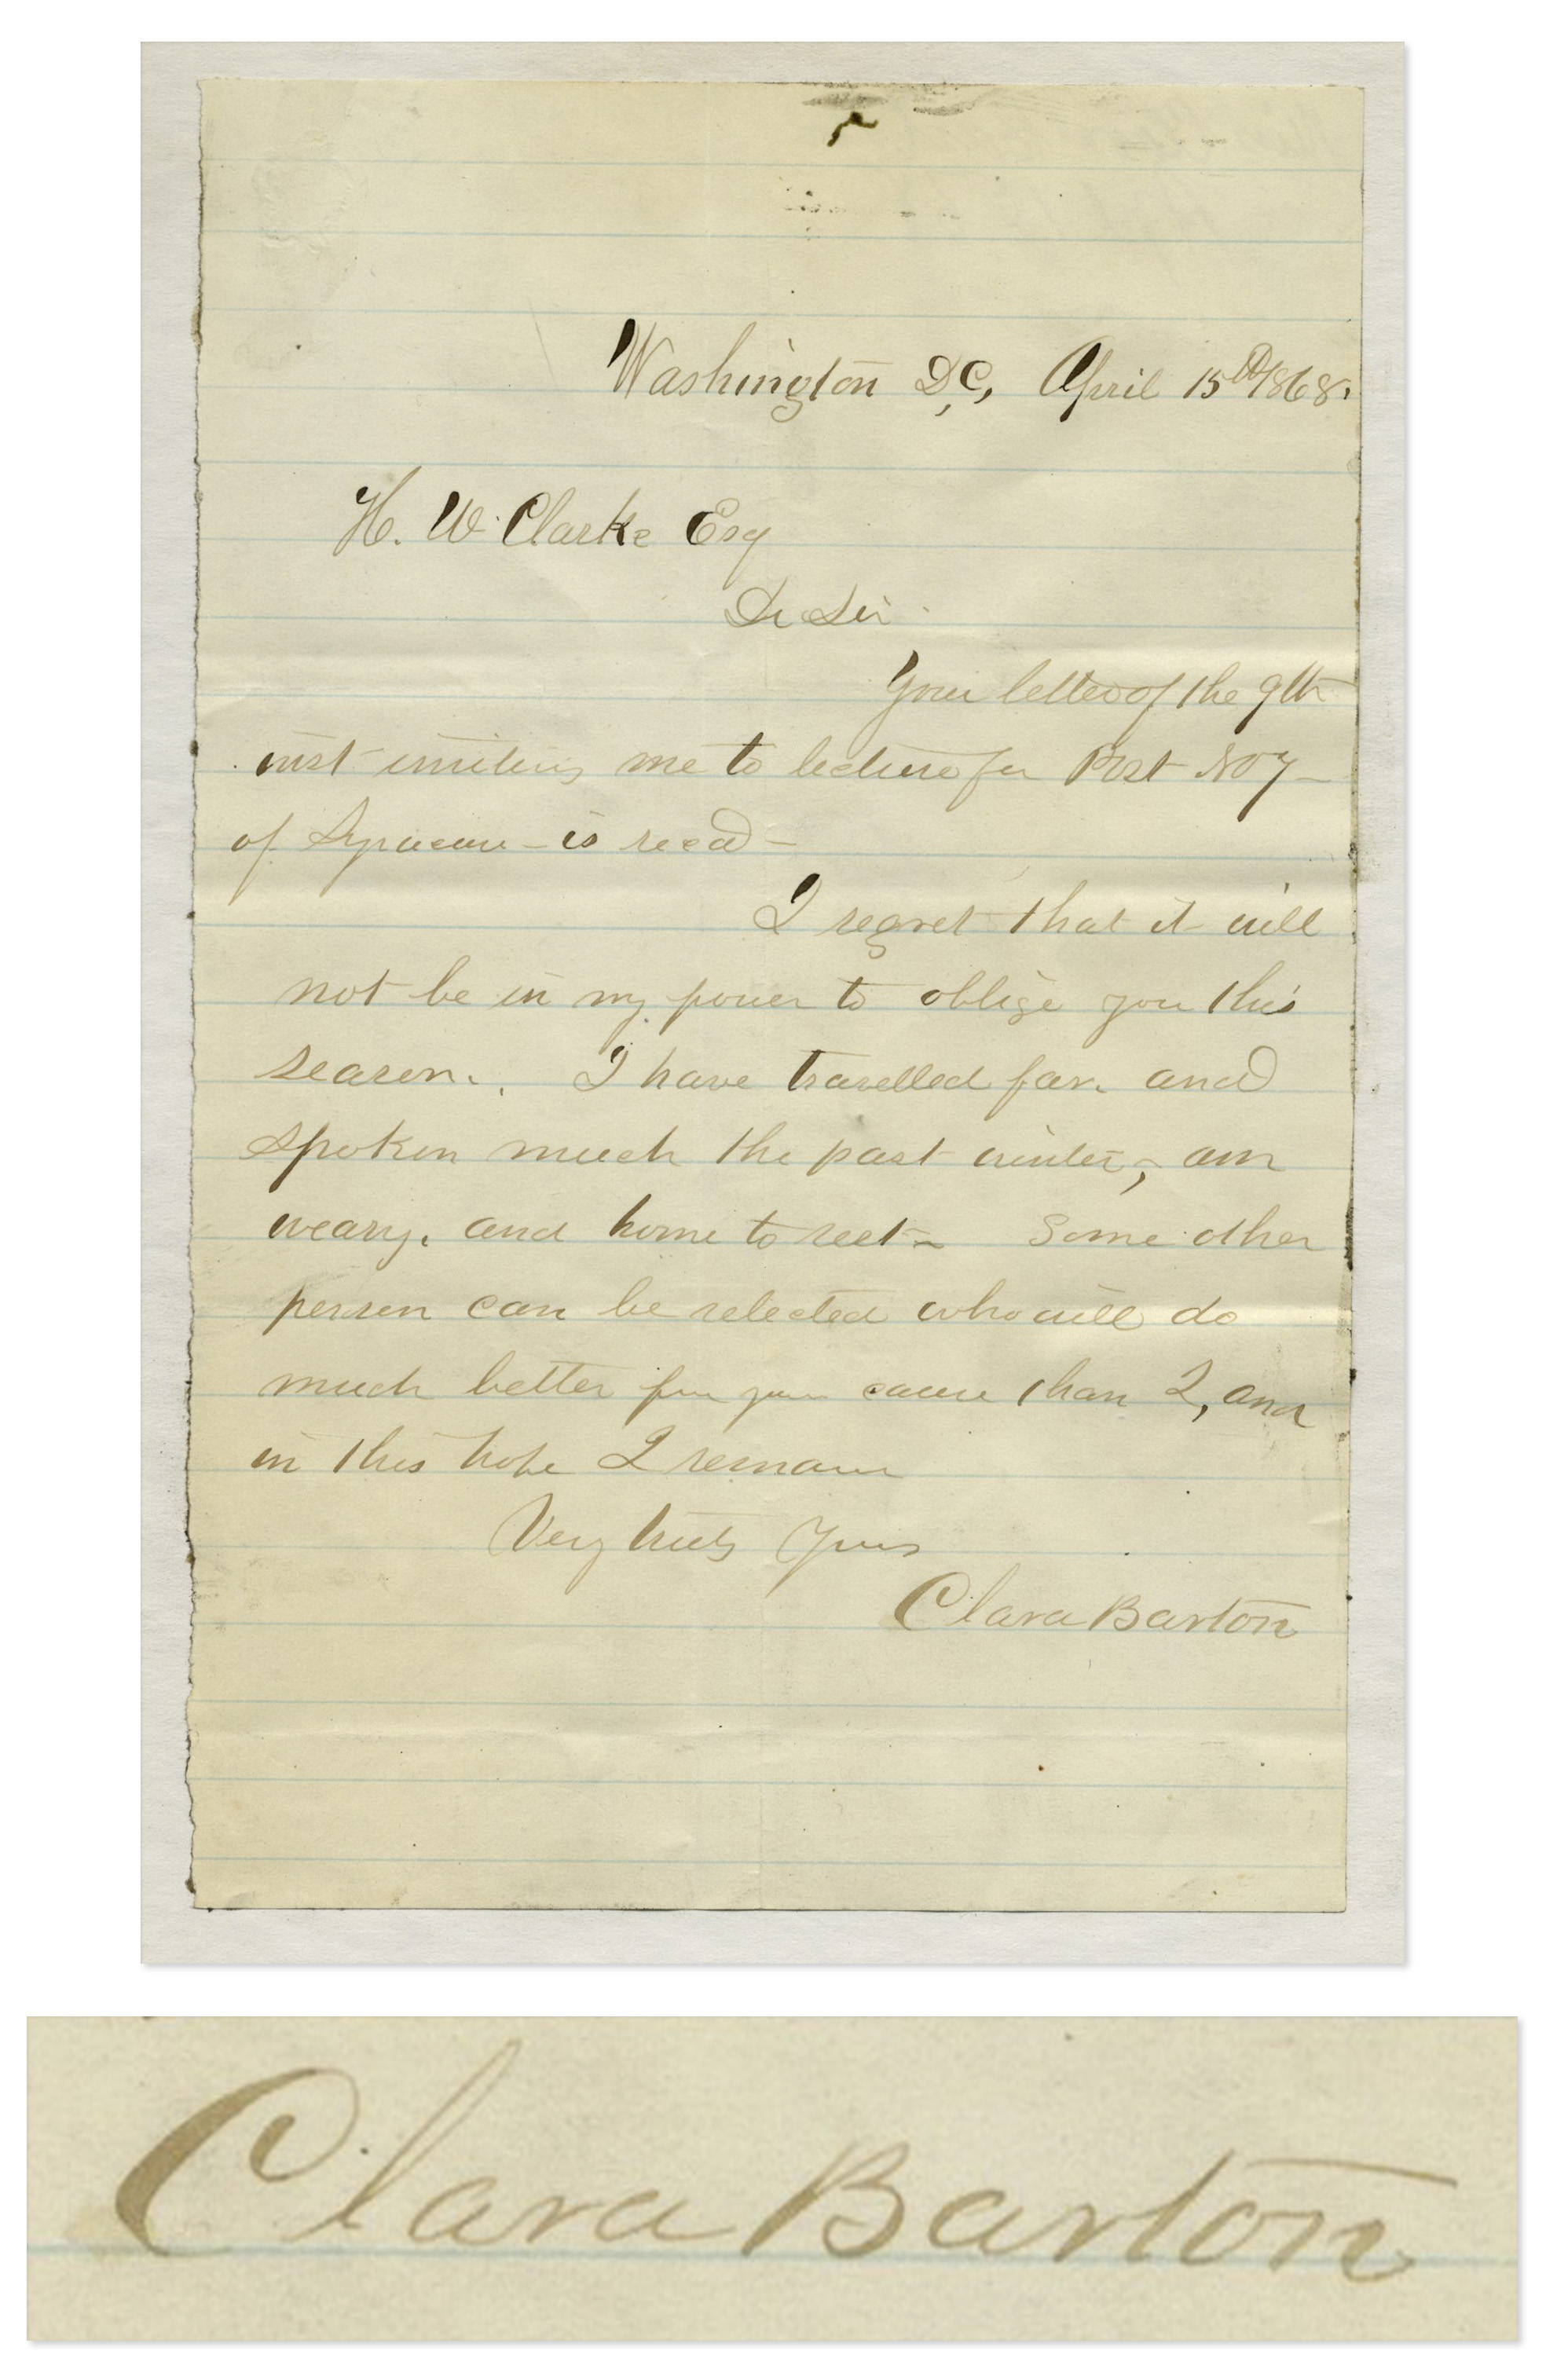 Washington D.C, April 15th 1868.
H. W. Clarke Esq
Dr Sir
Your letter of the 9th
inst inviting me to lecture for Post No 7 –
of Syracuse – is recd –
I regret that it will
not be in my power to oblige you this
season. I have travelled far and
spoken much the past winter, am
weary, and home to rest – Some other
person can be selected who will do
much better for your cause than I, and
in this hope I remain
Very truly Yours
Clara Barton
Clara Barton